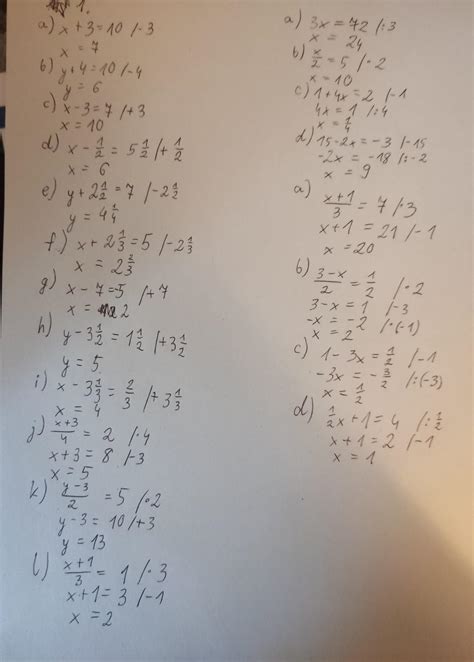 1.
a) x + 3 = 10 /-3
x = 7
b) y + 4 = 10 /-4
y = 6
c) x - 3 = 7 /+3
x = 10
d) x - 1/2 = 5 1/2 /+ 1/2
x = 6
e) y + 2 1/2 = 7 /-2 1/2
y = 4 1/4
f.) x + 2 1/3 = 5 /-2 1/3
x = 2 2/3
g) x - 7 = -5 /+7
x = 2
h) y - 3 1/2 = 1 1/2 /+3 1/2
y = 5
i) x - 3 1/3 = 2/3 /+3 1/3
x = 4
j) x+3/4 = 2 /·4
x + 3 = 8 /-3
x = 5
k) y-3/2 = 5 /·2
y - 3 = 10 /+3
y = 13
l) x+1/3 = 1 /·3
x + 1 = 3 /-1
x = 2
a) 3x = 72 /:3
x = 24
b) x/2 = 5 /·2
x = 10
c) 1 + 4x = 2 /-1
4x = 1 /:4
x = 1/4
d) 15 - 2x = -3 /-15
-2x = -18 /:-2
x = 9
a) x+1/3 = 7 /·3
x + 1 = 21 /-1
x = 20
b) 3-x/2 = 1/2 /·2
3 - x = 1 /-3
-x = -2 /·(-1)
x = 2
c) 1 - 3x = 1/2 /-1
-3x = -3/2 /:(-3)
x = 1/2
d) 1/2 x + 1 = 4 /: 1/2
x + 1 = 2 /-1
x = 1